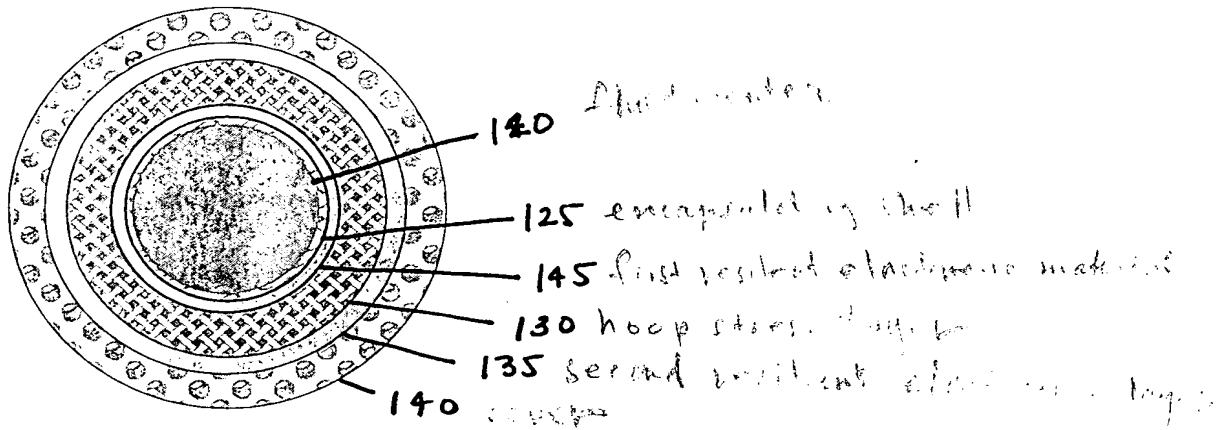 140
125 encapsulating shell
145 first resilient elastomeric material
130 hoop stress layer
135 second resilient layer
140 cover